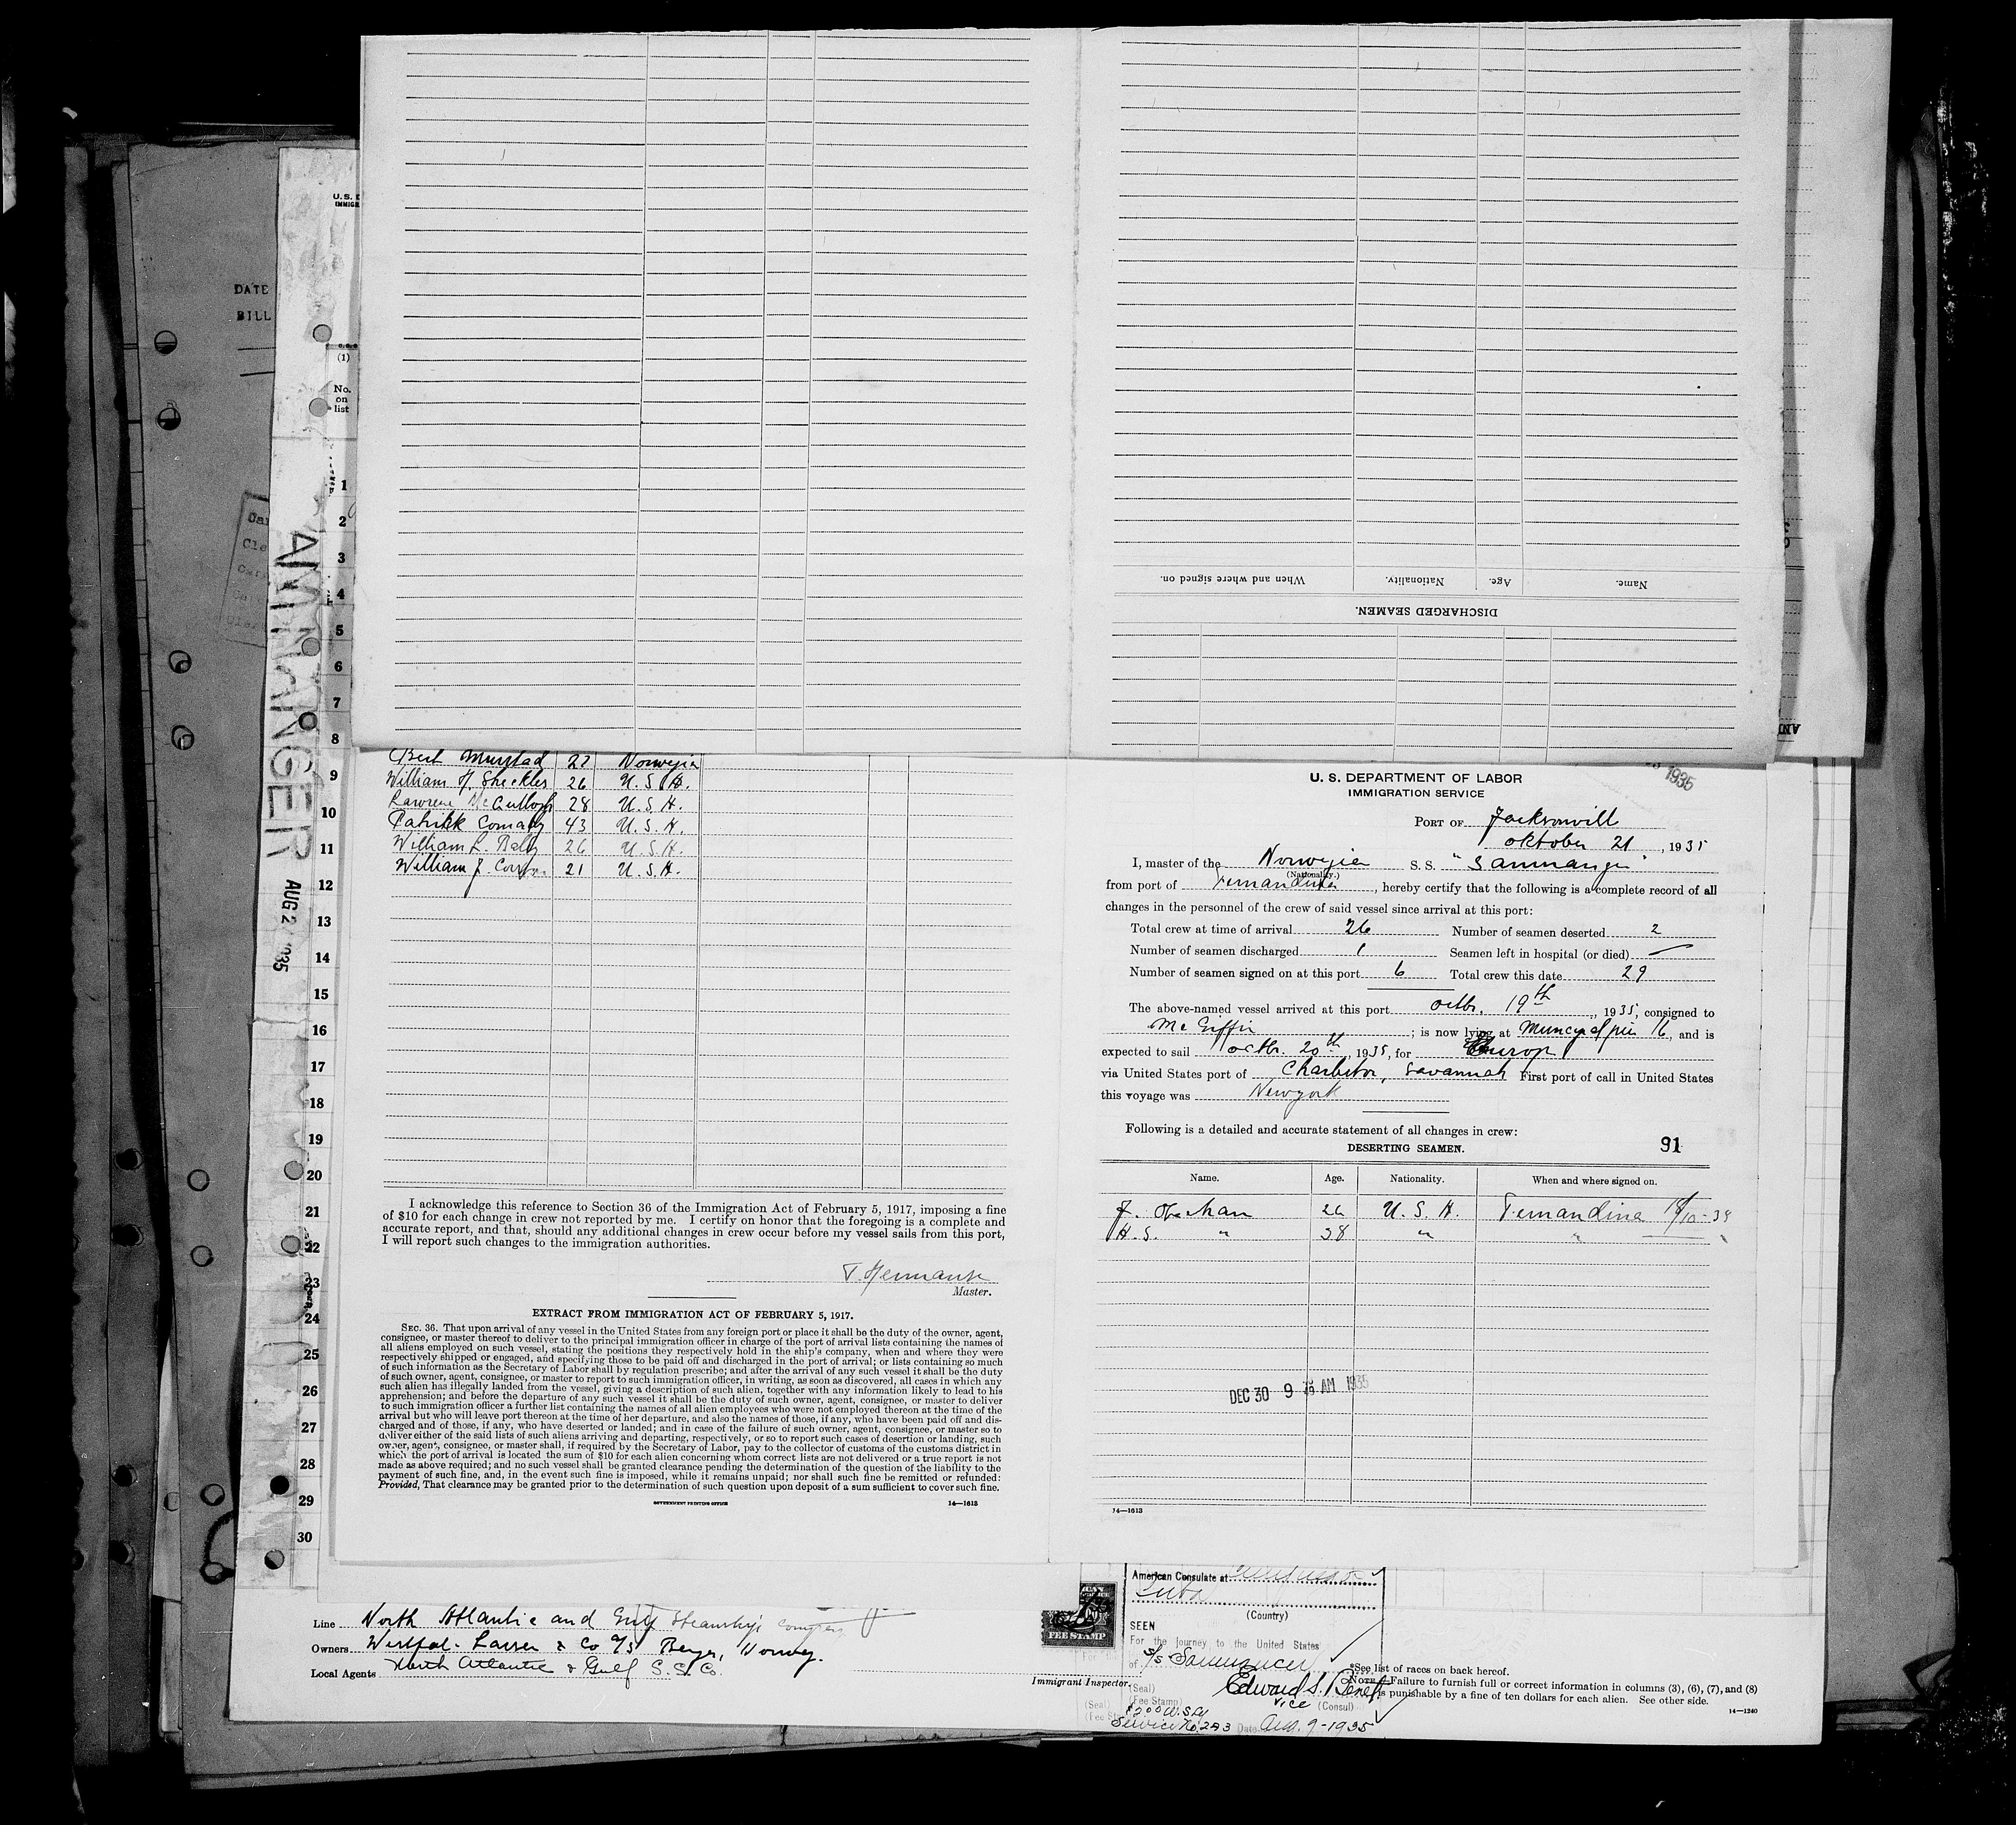 U. S. D
IMMIGR
DATE
BILL
(1)
No.
on
list
1
2
3
4
5
6
7
8
9
10
11
12
13
14
15
16
17
18
19
20
21
22
23
24
25
26
27
28
29
30
AUG 2 1935
When and where signed on.
Nationality.
Age.
Name.
DISCHARGED SEAMEN.
Bert Murstad 27 Norwegia
William H. Sheckler 26 U. S. A.
Lawrene McCullogh 28 U. S. A.
Patrikk 43 U. S. A.
William L. 26 U. S. A.
William J. 21 U. S. A.
I acknowledge this reference to Section 36 of the Immigration Act of February 5, 1917, imposing a fine
of $10 for each change in crew not reported by me. I certify on honor that the foregoing is a complete and
accurate report, and that, should any additional changes in crew occur before my vessel sails from this port,
I will report such changes to the immigration authorities.
Master.
EXTRACT FROM IMMIGRATION ACT OF FEBRUARY 5, 1917.
SEC. 36. That upon arrival of any vessel in the United States from any foreign port or place it shall be the duty of the owner, agent,
consignee, or master thereof to deliver to the principal immigration officer in charge of the port of arrival lists containing the names of
all aliens employed on such vessel, stating the positions they respectively hold in the ship's company, when and where they were
respectively shipped or engaged, and specifying those to be paid off and discharged in the port of arrival; or lists containing so much
of such information as the Secretary of Labor shall by regulation prescribe; and after the arrival of any such vessel it shall be the duty
of such owner, agent, consignee, or master to report to such immigration officer, in writing, as soon as discovered, all cases in which any
such alien has illegally landed from the vessel, giving a description of such alien, together with any information likely to lead to his
apprehension; and before the departure of any such vessel it shall be the duty of such owner, agent, consignee, or master to deliver
to such immigration officer a further list containing the names of all alien employees who were not employed thereon at the time of the
arrival but who will leave port thereon at the time of her departure, and also the names of those, if any, who have been paid off and dis-
charged and of those, if any, who have deserted or landed; and in case of the failure of such owner, agent, consignee, or master so to
deliver either of the said lists of such aliens arriving and departing, respectively, or so to report such cases of desertion or landing, such
owner, agent, consignee, or master shall, if required by the Secretary of Labor, pay to the collector of customs of the customs district in
which the port of arrival is located the sum of $10 for each alien concerning whom correct lists are not delivered or a true report is not
made as above required; and no such vessel shall be granted clearance pending the determination of the question of the liability to the
payment of such fine, and, in the event such fine is imposed, while it remains unpaid; nor shall such fine be remitted or refunded:
Provided, That clearance may be granted prior to the determination of such question upon deposit of a sum sufficient to cover such fine.
GOVERNMENT PRINTING OFFICE 14—1613
1935
U. S. DEPARTMENT OF LABOR
IMMIGRATION SERVICE
PORT OF Jacksonvill
oktober 21, 1935
I, master of the Norwegian S. S. "Sammanger"
(Nationality.)
from port of Fernandina, hereby certify that the following is a complete record of all
changes in the personnel of the crew of said vessel since arrival at this port:
Total crew at time of arrival 26 Number of seamen deserted 2
Number of seamen discharged 1 Seamen left in hospital (or died) —
Number of seamen signed on at this port 6 Total crew this date 29
The above-named vessel arrived at this port octbr. 19th, 1935, consigned to
Mc Giffin; is now lying at pier 16, and is
expected to sail octbr. 20th, 1935, for Europ
via United States port of Charleston, Savannah First port of call in United States
this voyage was Newyork
Following is a detailed and accurate statement of all changes in crew:
DESERTING SEAMEN. 91
Name. Age. Nationality. When and where signed on.
J. 26 U. S. A. Fernandina
H. S. " 38 " "
DEC 30 9 AM 1935
14—1613
Line North Atlantic and Gulf Steamship Company
Owners Westfal-Larsen & Co A/S Bergen, Norway.
Local Agents North Atlantic & Gulf S. S. Co.
Immigrant Inspector.
FEE STAMP
American Consulate at
Cuba
(Country)
SEEN
For the journey to the United States
of S/S Sammanger
Edward S. Benet
Vice (Consul)
(Seal)
(Fee Stamp)
Service No. 293 Date Aug. 9-1935
*See list of races on back hereof.
NOTE.—Failure to furnish full or correct information in columns (3), (6), (7), and (8)
is punishable by a fine of ten dollars for each alien. See other side.
14—1240